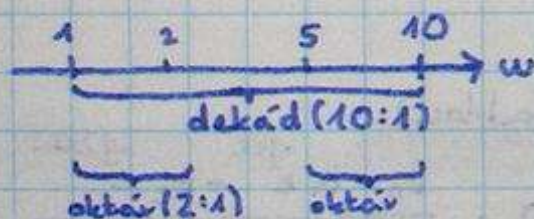 1 2 5 10
ω
dekád (10:1)
oktáv (2:1) oktáv